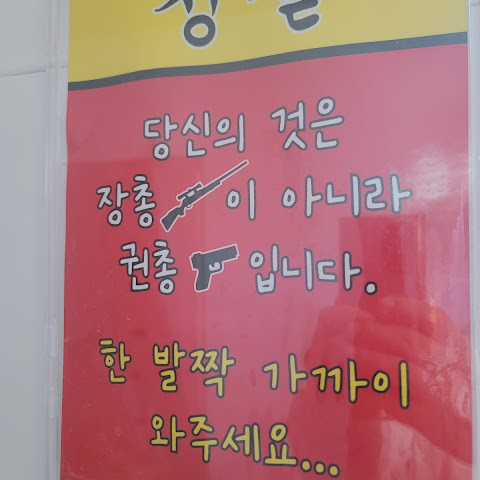 당신의 것은
장총이 아니라
권총입니다.
한 발짝 가까이
와주세요...